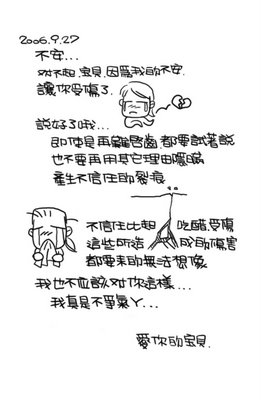 2006.9.27
不安...
對不起，宝貝，因為我的不安
讓你受傷了.
說好了哦...
即使是再難唇齒 都要試著說
也不要再用其它理由隱瞞
產生不信任的裂痕
不信任比起 吃醋.受傷
這些所造成的傷害
都要來的無法想像
我也不應該对你這樣...
我真是不爭氣ㄚ...
愛你的宝貝.